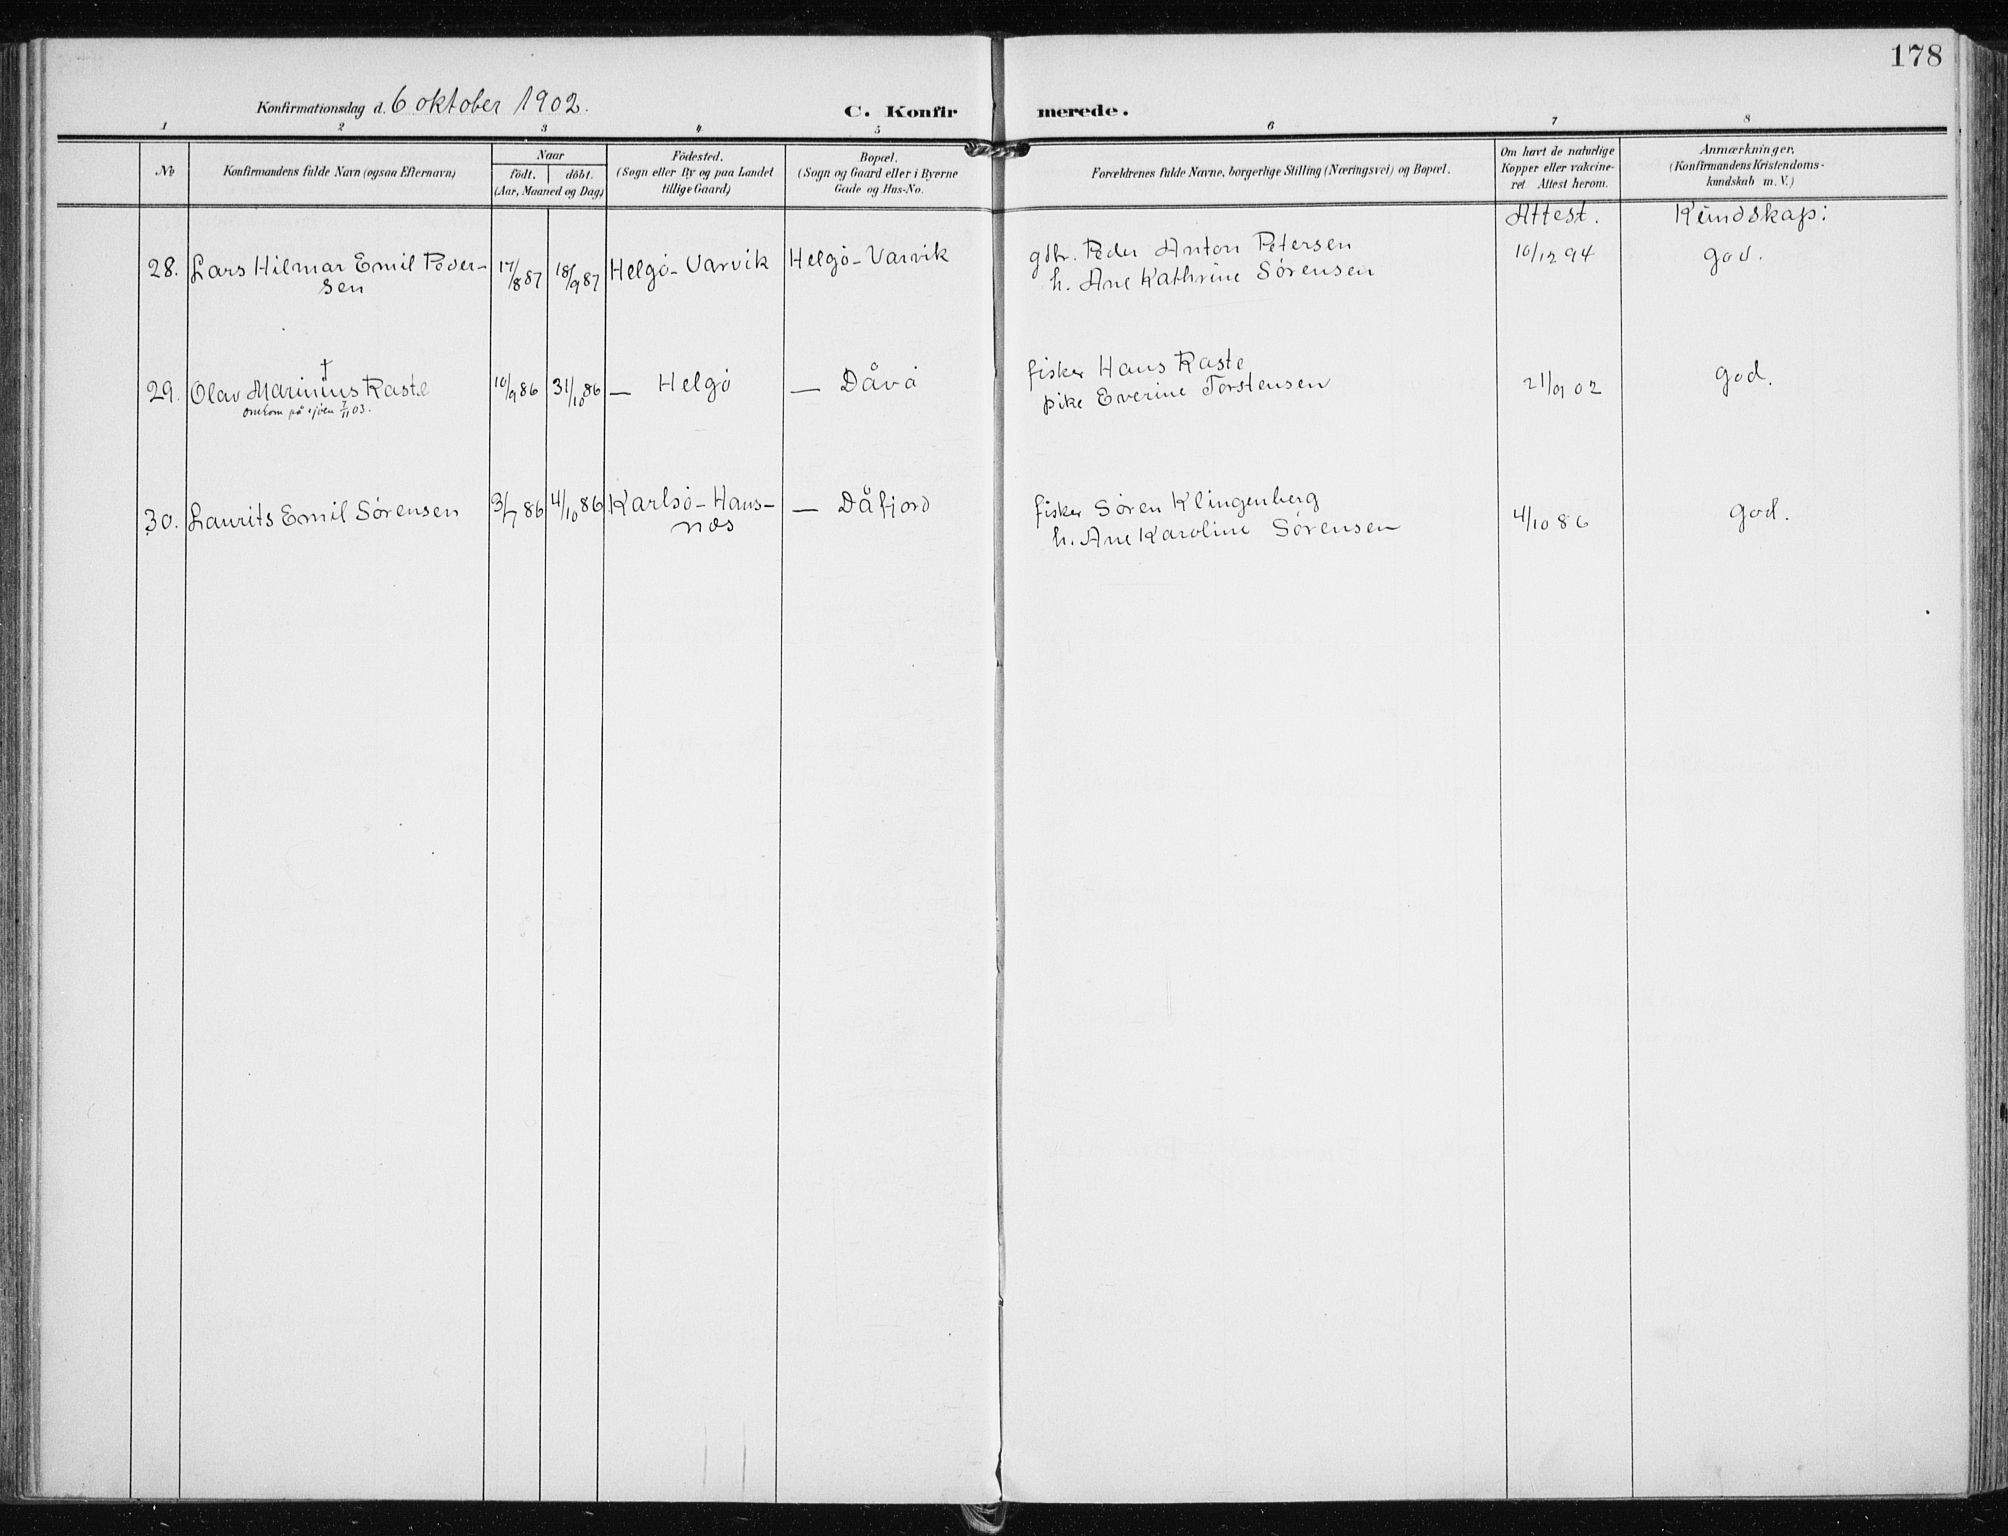 178
Konfirmationsdag d. 6 oktober 1902.
C. Konfirmerede.
1 2 3 4 5 6 7 8
No
Konfirmandens fulde Navn (ogsaa Efternavn)
Naar
födt. döbt.
(Aar, Maaned og Dag)
Födested.
(Sogn eller By og paa Landet
tillige Gaard)
Bopæl.
(Sogn og Gaard eller i Byerne
Gade og Hus-No.
Forældrenes fulde Navne, borgerlige Stilling (Næringsvei) og Bopæl.
Om havt de naturlige
Kopper eller vakcine-
ret Attest herom.
Anmærkninger,
(Konfirmandens Kristendoms-
kundskab m. V.)
Attest. Kundskap:
28. Lars Hilmar Emil Peder-
sen
17/8 87 18/9 87 Helgö-Varvik Helgö-Varvik
gbr. Peder Anton Petersen
h. Ane Kathrine Sørensen
10/12 94 god.
29. Olav Marinius Raste †
omkom på sjøen 7/11 03.
10/9 86 31/10 86 — Helgö — Dåvö
fisker Hans Raste
pike Everine Torstensen
21/9 02 god.
30. Laurits Emil Sørensen
3/7 86 4/10 86 Karlsö-Hans-
næs
— Dåfjord
fisker Søren Klingenberg
h. Ane Karoline Sørensen
4/10 86 god.